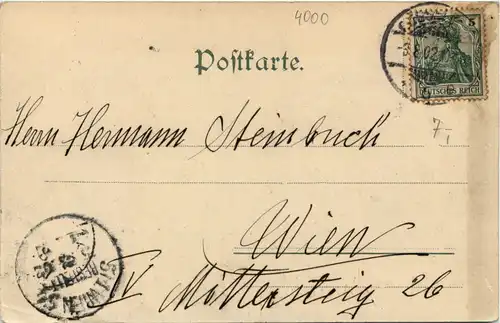 4000
Postkarte.
DEUTSCHES REICH
7,-
Herrn Hermann Steinbuch
Wien
IV Mittersteig 26